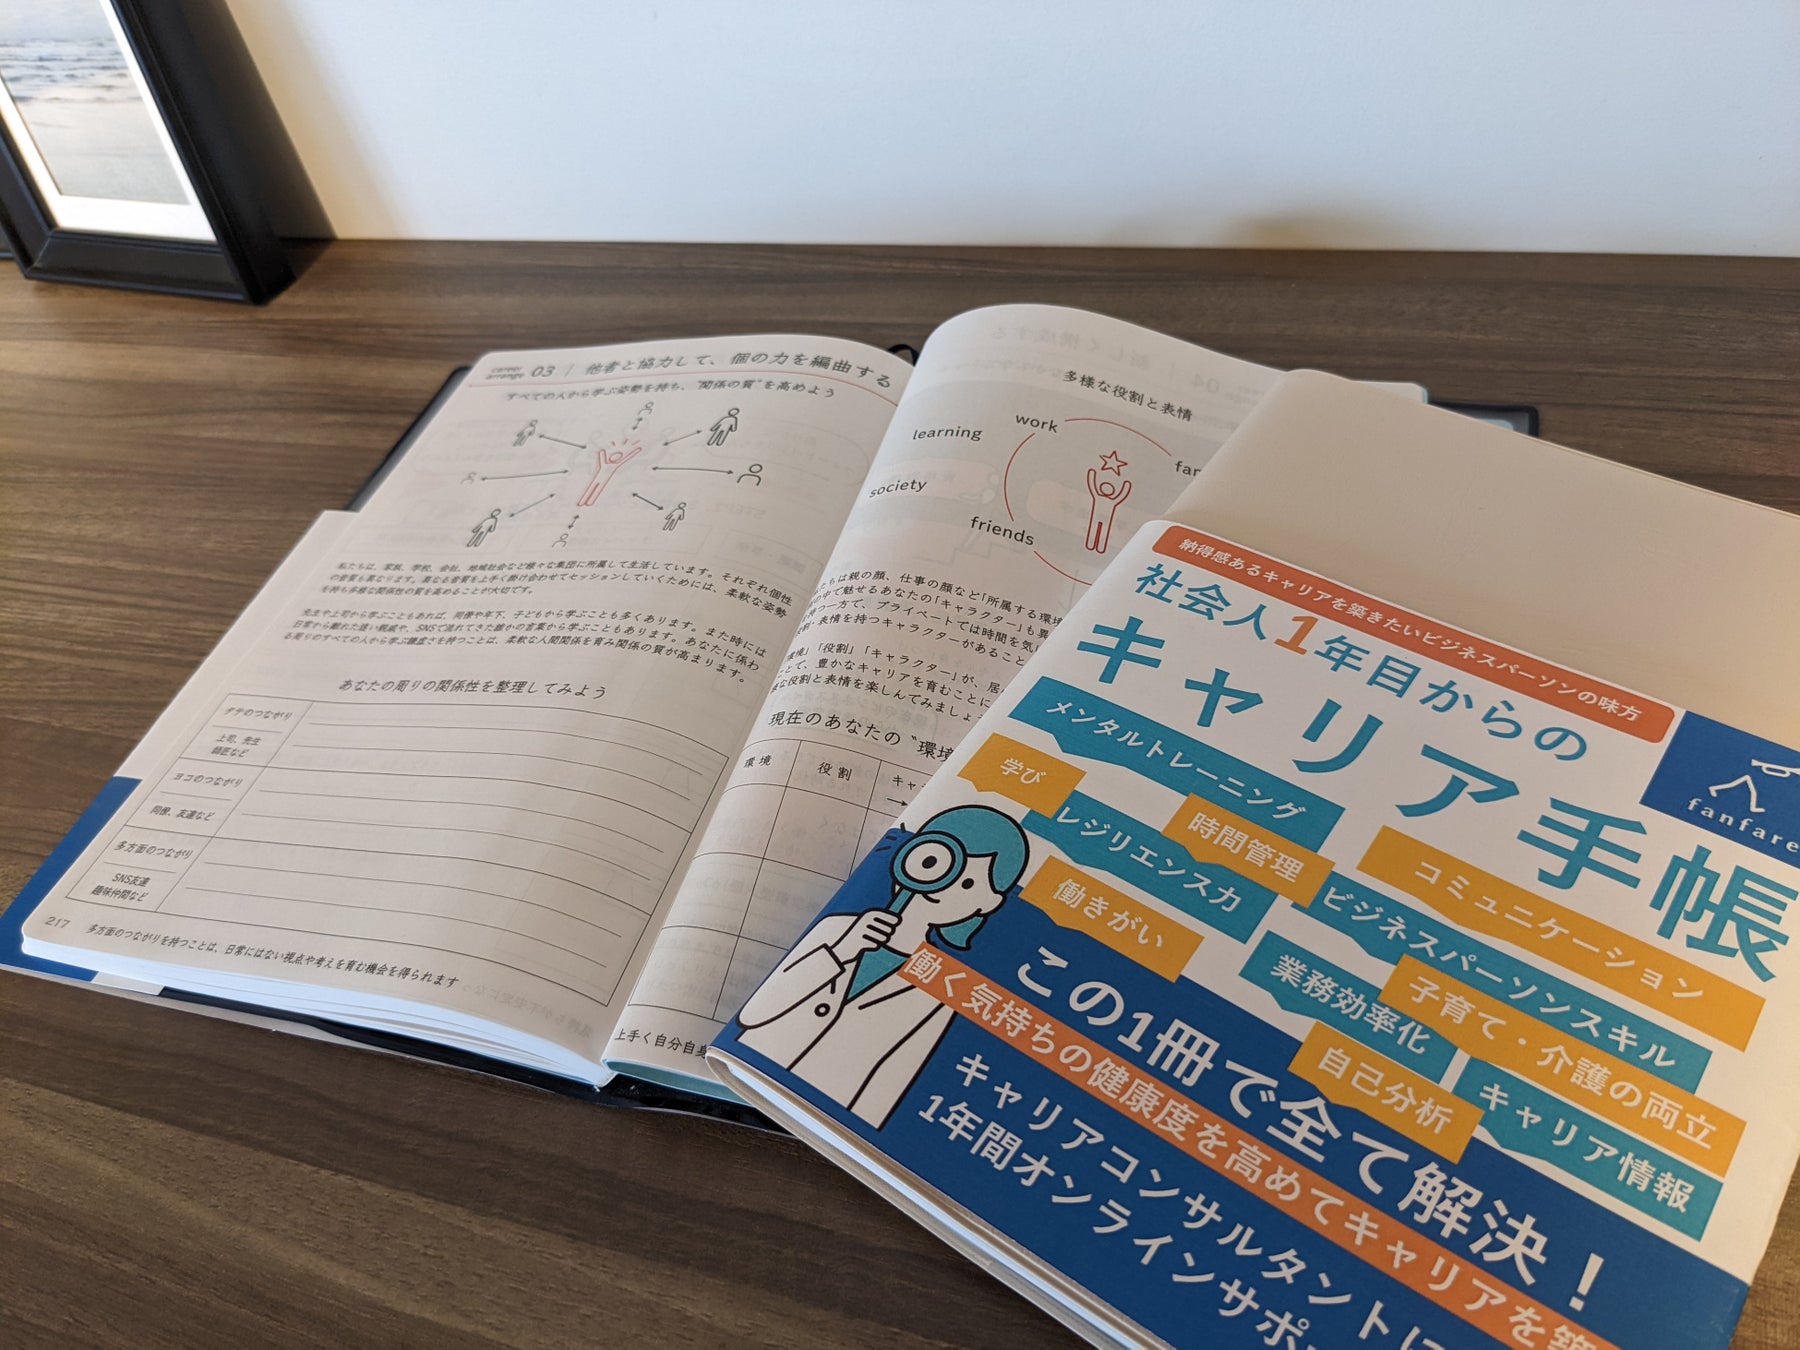 career arrange 03 | 他者と協力して、個の力を編曲する
すべての人から学ぶ姿勢を持ち、"関係の質"を高めよう
私たちは、家族、学校、会社、地域社会など様々な集団に所属して生活しています。それぞれ個性
の音質も異なります。異なる音質を上手く掛け合わせてセッションしていくためには、柔軟な姿勢
を持ち多様な関係性の質を高めることが大切です。
先生や上司から学ぶこともあれば、同僚や年下、子どもから学ぶことも多くあります。また時には
日常から離れた遠い親戚や、SNSで流れてきた誰かの言葉から学ぶこともあります。あなたに係わ
る周りのすべての人から学ぶ謙虚さを持つことは、柔軟な人間関係を育み関係の質が高まります。
あなたの周りの関係性を整理してみよう
タテのつながり
上司、先生
師匠など
ヨコのつながり
同僚、友達など
多方面のつながり
SNS友達
趣味仲間など
217
多方面のつながりを持つことは、日常にはない視点や考えを育む機会を得られます
多様な役割と表情
work
learning
society
friends
ちは親の顔、仕事の顔など「所属する環境
の中で魅せるあなたの「キャラクター」も異
持つ一方で、プライベートでは時間を気に
・表情を持つキャラクターがあること
」「役割」「キャラクター」が、居
とて、豊かなキャリアを育むことに
な役割と表情を楽しんでみましょ
現在のあなたの"環境
環境
役割
キャ
上手く自分自身
納得感あるキャリアを築きたいビジネスパーソンの味方
社会人1年目からの
キャリア手帳
fanfare
メンタルトレーニング
学び
レジリエンス力
時間管理
コミュニケーション
働きがい
ビジネスパーソンスキル
業務効率化
子育て・介護の両立
自己分析
キャリア情報
この1冊で全て解決！
働く気持ちの健康度を高めてキャリアを築
キャリアコンサルタントに
1年間オンラインサポ